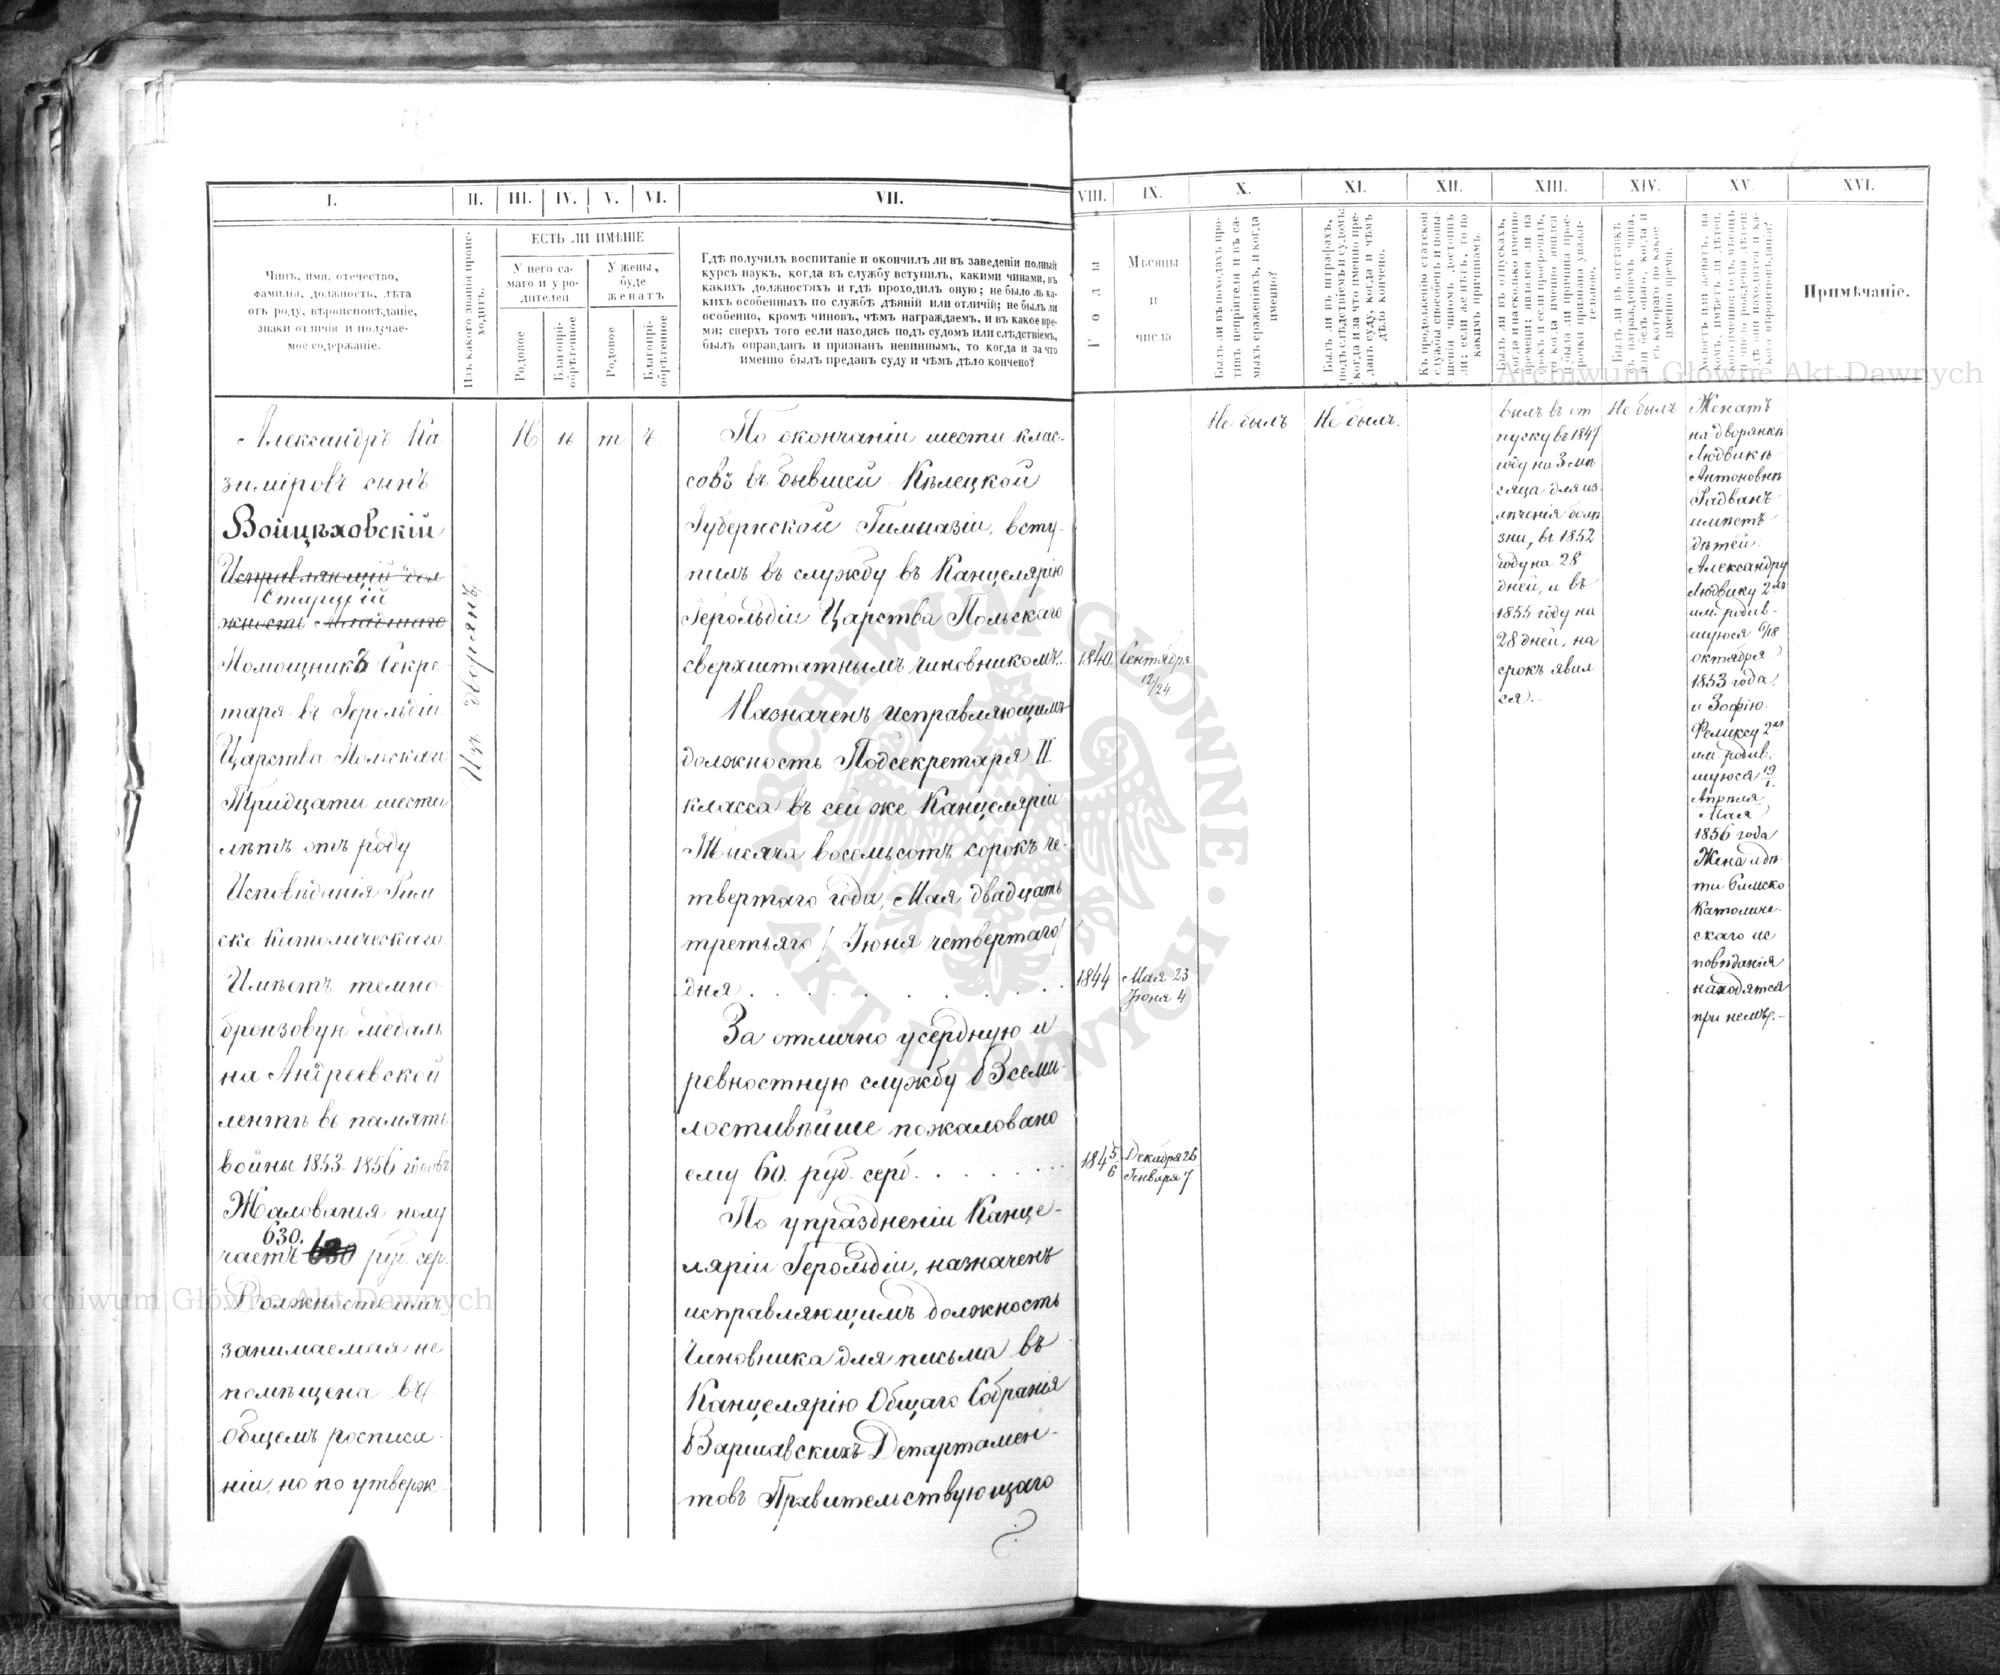 I.
II.
III.
IV.
V.
VI.
VII.
VIII.
IX.
X.
XI.
XII.
XIII.
XIV.
XV.
XVI.
Чинъ, имя, отечество,
фамилія, должность, лѣта
отъ роду, вѣроисповѣданіе,
знаки отличія и получае-
мое содержаніе.
Изъ какого званія проис-
ходитъ.
ЕСТЬ ЛИ ИМѢНІЕ
У него са-
маго и у ро-
дителей
У жены,
буде
женатъ
Родовое
Благопрі-
обрѣтенное
Родовое
Благопрі-
обрѣтенное
Гдѣ получилъ воспитаніе и окончилъ ли въ заведеніи полный
курсъ наукъ, когда въ службу вступилъ, какими чинами, въ
какихъ должностяхъ и гдѣ проходилъ оную; не было ль ка-
кихъ особенныхъ по службѣ дѣяній или отличій; не былъ ли
особенно, кромѣ чиновъ, чѣмъ награждаемъ, и въ какое вре-
мя; сверхъ того если находясь подъ судомъ или слѣдствіемъ,
былъ оправданъ и признанъ невиннымъ, то когда и за что
именно былъ преданъ суду и чѣмъ дѣло кончено?
Годы
Мѣсяцы
и
числа
Былъ ли въ походахъ про-
тивъ непріятеля и въ са-
мыхъ сраженіяхъ, и когда
именно?
Былъ ли въ штрафахъ,
подъ слѣдствіемъ и судомъ;
когда и за что именно пре-
данъ суду, когда и чѣмъ
дѣло кончено.
Къ продолженію статской
службы способенъ и повы-
шенія чиномъ достоинъ
ли; если же нѣтъ, то по
какимъ причинамъ.
Былъ ли въ отпускахъ,
когда и насколько именно
времени; явился ли на
срокъ и если просрочилъ,
то когда именно явился
и была ли причина прос-
рочки признана уважи-
тельною.
Былъ ли въ отставкѣ
съ награжденіемъ чина,
или безъ онаго, когда и
съ котораго по какое
именно время.
Холостъ или женатъ, на
комъ, имѣетъ ли дѣтей,
кого именно; годъ, мѣсяцъ
и число рожденія дѣтей;
гдѣ они находятся и ка-
кого вѣроисповѣданія?
Примѣчаніе.
Александръ Ка
зиміровъ сынъ
Войцѣховскій
Исправляющій дол
Старшій
жность Младшаго
Помощникъ Секре-
таря въ Герольдіи
Царства Польскаго
Тридцати шести
лѣтъ отъ роду
Исповѣданія Рим
ско католическаго.
Имѣетъ темно
бронзовую медаль
на Андреевской
лентѣ въ память
войны 1853-1856 годовъ
Жалованія полу
630.
чаетъ 630 руб. сер.
Должность имъ
занимаемая не
помѣщена въ
общемъ росписа-
ніи, но по утверж-
Изъ дворянъ
Н
ѣ
т
ъ
По окончаніи шести клас-
совъ въ бывшей Кѣлецкой
Губернской Гимназіи, всту-
пилъ въ службу въ Канцелярію
Герольдіи Царства Польскаго
сверхштатнымъ чиновникомъ..
1840.
Сентября
12/24
Назначенъ исправляющимъ
должность Подсекретаря II
класса въ сей же Канцеляріи
Тысяча восемьсотъ сорокъ че-
твертаго года, Мая двадцать
третьяго / Іюня четвертаго/
дня . . . . . . . . .
1844
Мая 23
Іюня 4
За отлично усердную и
ревностную службу Всеми-
лостивѣйше пожаловано
ему 60. руб. сер. . . . . . .
184 5/6
Декабря 26
Января 7
По упраздненіи Канце-
ляріи Герольдіи, назначенъ
исправляющимъ должность
Чиновника для письма въ
Канцелярію Общаго Собранія
Варшавскихъ Департамен-
товъ Правительствующаго
Не былъ
Не былъ.
Былъ въ от
пуску въ 1847
году на 3 мѣ
сяца для из
лѣченія болѣ
зни, въ 1852
году на 28
дней, и въ
1855 году на
28 дней, на
срокъ явил
ся.-
Не былъ
Женатъ
на дворянкѣ
Людвикѣ
Антоновнѣ
Радванъ
имѣетъ
дѣтей:
Александру
Людвику 2хъ
им. родив-
шуюся 6/18
октября
1853 года.
и Зофію
Феликсу 2хъ
им. родив-
шуюся 19/1.
Апрѣля
Мая
1856 года
Жена и дѣ-
ти Римско
Католиче-
скаго ис
повѣданія
находятся
при немъ.-
Archiwum Główne Akt Dawnych
Archiwum Główne Akt Dawnych
ARCHIWUM GŁÓWNE AKT DAWNYCH